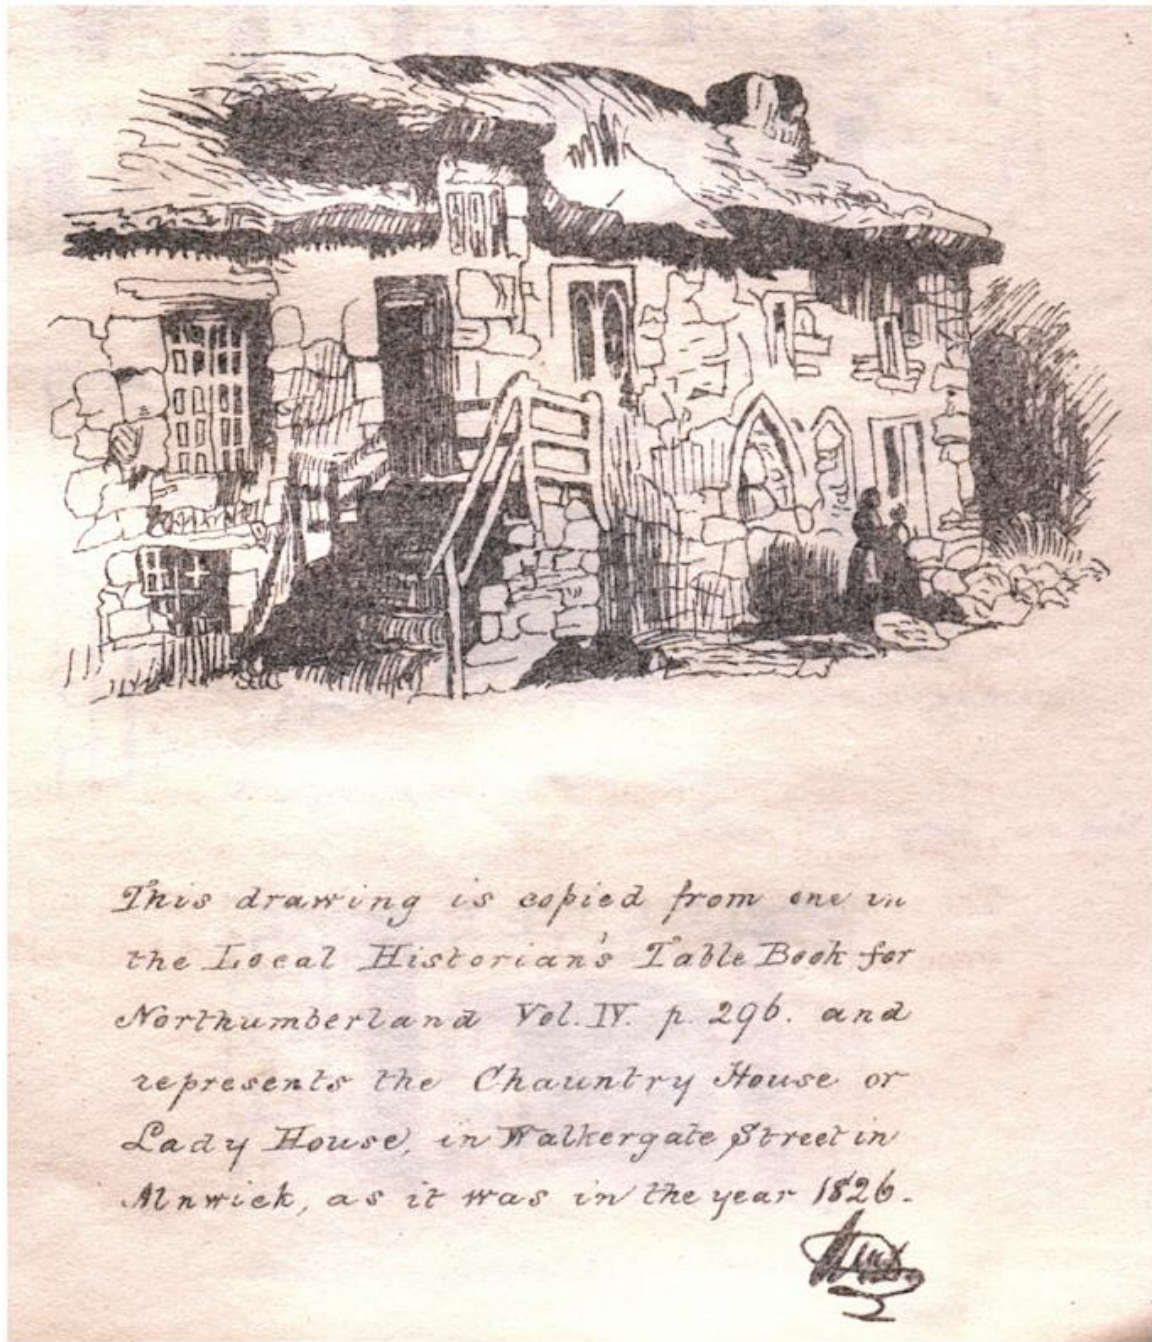 This drawing is copied from one in
the Local Historian's Table Book for
Northumberland Vol. IV. p. 296. and
represents the Chauntry House or
Lady House, in Walkergate Street in
Alnwick, as it was in the year 1826.